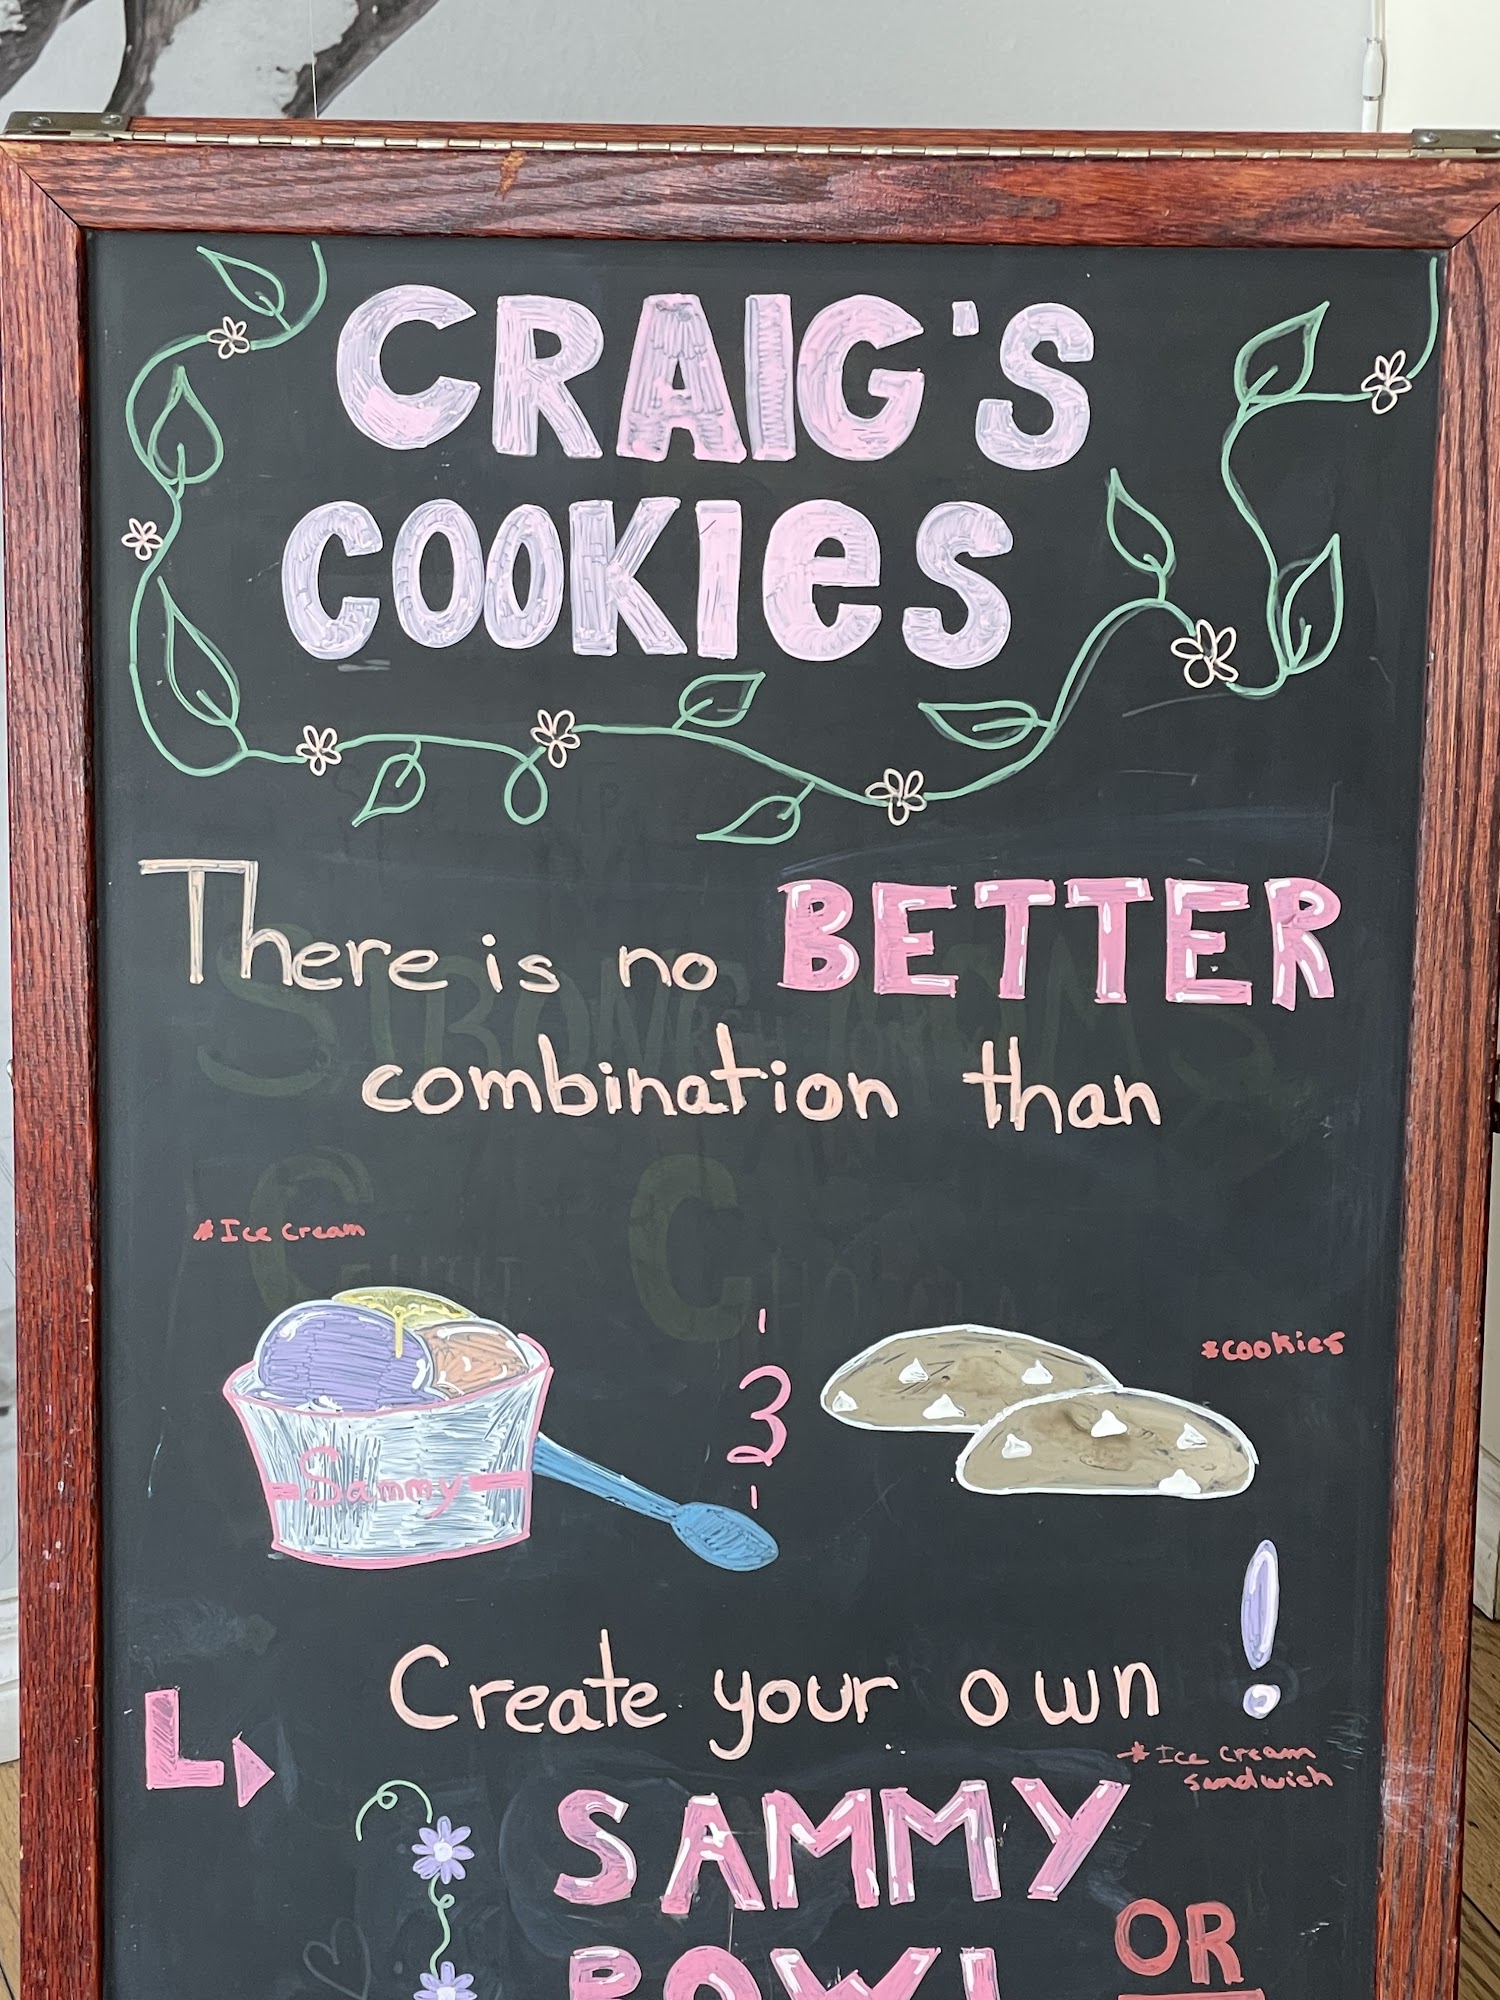 CRAIG'S
COOKIES
There is no BETTER
combination than
*Ice cream
*cookies
Sammy
Create your own!
*Ice cream
sandwich
SAMMY
BOWL
OR